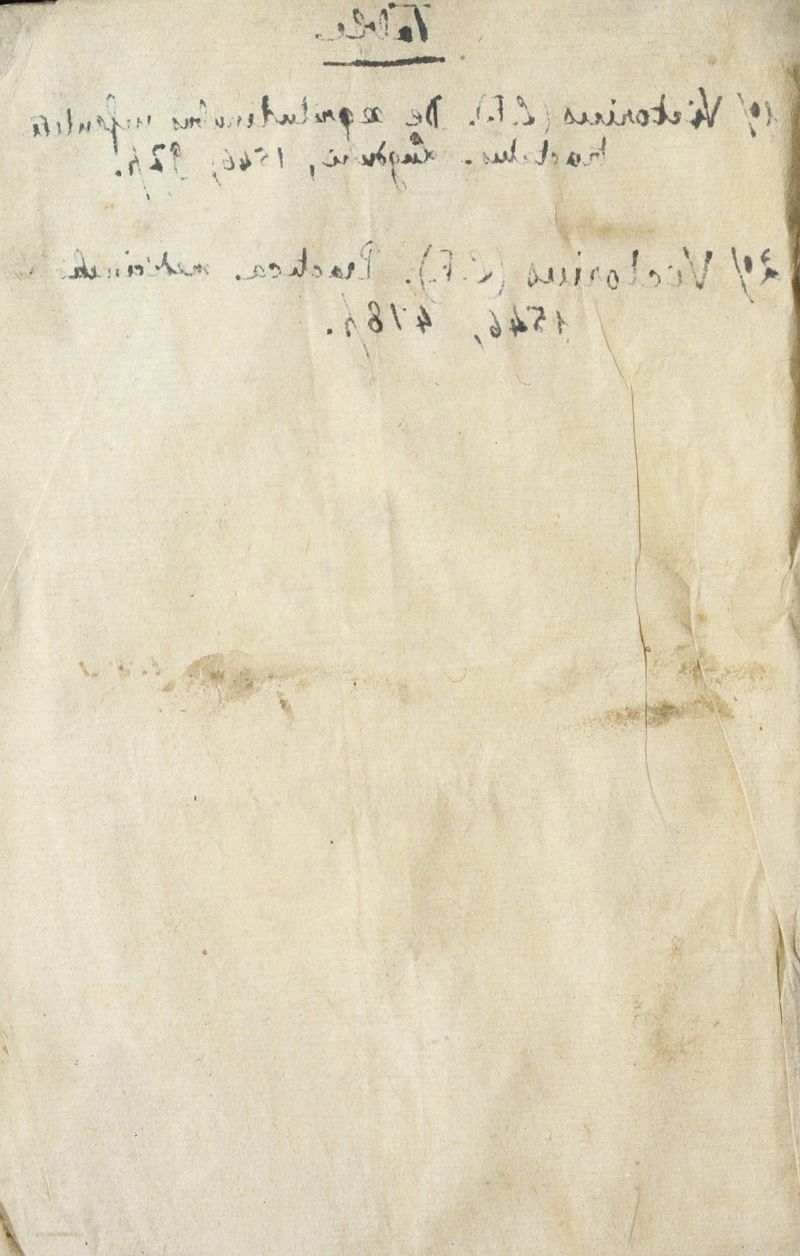 Table
1º/ Victorius (L.F.). De aegritudinibus infantium
tractatus. Lugduni, 1546, 92 p.
2º/ Victorius (L.F.). Practica medicinalis
1546, 478 p.